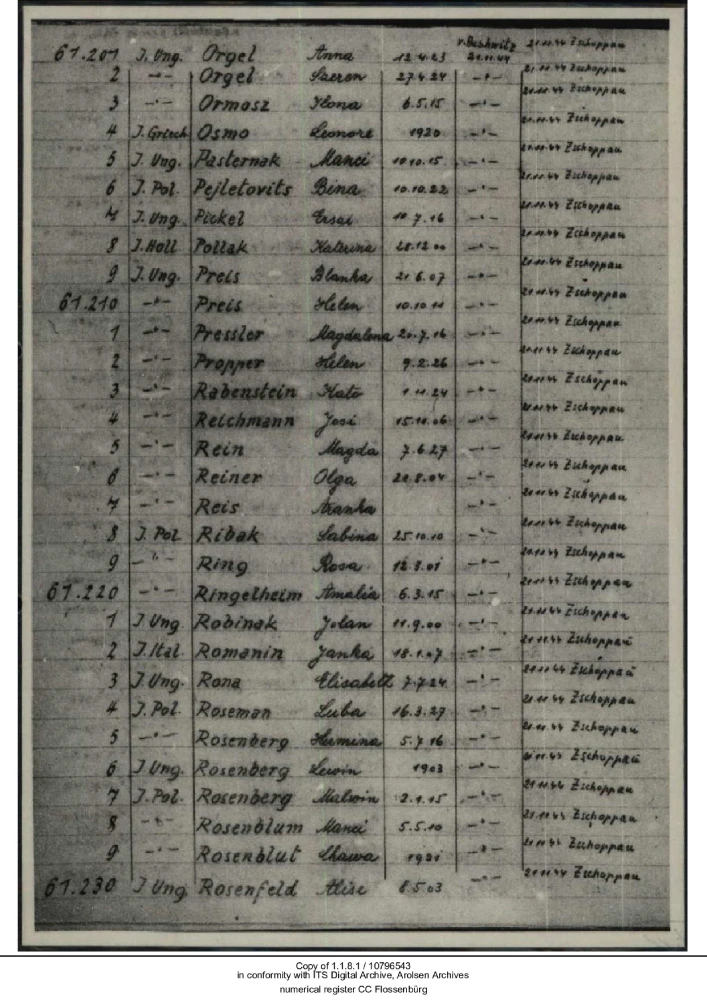 61.201 J. Ung. Orgel Anna 12.4.23 v. Auschwitz 21.11.44 21.11.44 Zschoppau
2 -"- Orgel Szeren 27.4.24 -"- 21.11.44 Zschoppau
3 -"- Ormosz Ilona 6.5.15 -"- 21.11.44 Zschoppau
4 J. Griech Osmo Leonore 1920 -"- 21.11.44 Zschoppau
5 J. Ung. Pasternak Manci 10.10.15. -"- 21.11.44 Zschoppau
6 J. Pol. Pejletovits Bina 10.10.22 -"- 21.11.44 Zschoppau
7 J. Ung. Pickel 7.16 -"- 21.11.44 Zschoppau
8 J. Holl Pollak Katerina 28.12.00 -"- 21.11.44 Zschoppau
9 J. Ung. Preis Blanka 21.6.07 -"- 21.11.44 Zschoppau
61.210 -"- Preis Helen 10.10.11 -"- 21.11.44 Zschoppau
1 -"- Pressler Magdalena 20.7.16 -"- 21.11.44 Zschoppau
2 -"- Propper Helen 9.2.26 -"- 21.11.44 Zschoppau
3 -"- Rabenstein Kato 1.11.24 -"- 21.11.44 Zschoppau
4 -"- Reichmann Josi 15.11.06 -"- 21.11.44 Zschoppau
5 -"- Rein Magda 7.6.27 -"- 21.11.44 Zschoppau
6 -"- Reiner Olga 20.8.04 -"- 21.11.44 Zschoppau
7 -"- Reis Aranka -"- 21.11.44 Zschoppau
8 J. Pol. Ribak Sabina 25.10.10 -"- 21.11.44 Zschoppau
9 -"- Ring Rosa 12.3.01 -"- 21.11.44 Zschoppau
61.220 -"- Ringelheim Amalia 6.3.15 -"- 21.11.44 Zschoppau
1 J. Ung Robinak Jolan 11.9.00 -"- 21.11.44 Zschoppau
2 J. Ital. Romanin Janka 18.1.07 -"- 21.11.44 Zschoppau
3 J. Ung. Rona Elisabeth 7.7.24 -"- 21.11.44 Zschoppau
4 J. Pol. Roseman Luba 16.3.27 -"- 21.11.44 Zschoppau
5 -"- Rosenberg Hermina 5.7.16 -"- 21.11.44 Zschoppau
6 J. Ung. Rosenberg Lewin 1903 -"- 21.11.44 Zschoppau
7 J. Pol. Rosenberg Malwin 2.1.15 -"- 21.11.44 Zschoppau
8 -"- Rosenblum Manci 5.5.10 -"- 21.11.44 Zschoppau
9 -"- Rosenblut Chawa 1921 -"- 21.11.44 Zschoppau
61.230 J. Ung Rosenfeld Alise 8.5.03 -"- 21.11.44 Zschoppau
Copy of 1.1.8.1 / 10796543
in conformity with ITS Digital Archive, Arolsen Archives
numerical register CC Flossenbürg